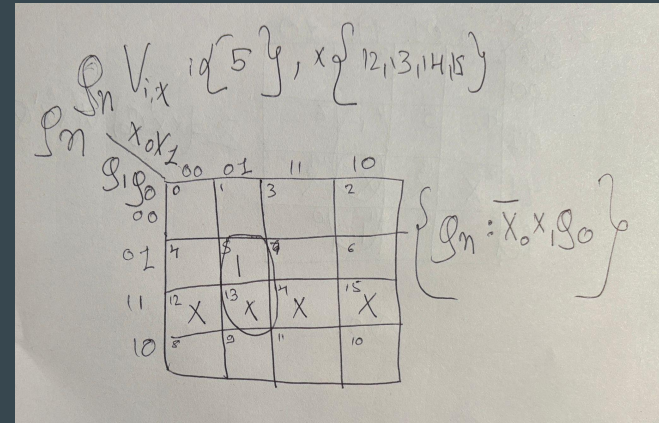 gn Vi,x i{5}, x{12,13,14,15}
gn
x0x1
g1g0 00 01 11 10
00 0 1 3 2
01 4 5 1 7 6
11 12 X 13 X 14 X 15 X
10 8 9 11 10
{gn : x̄0x1g0}